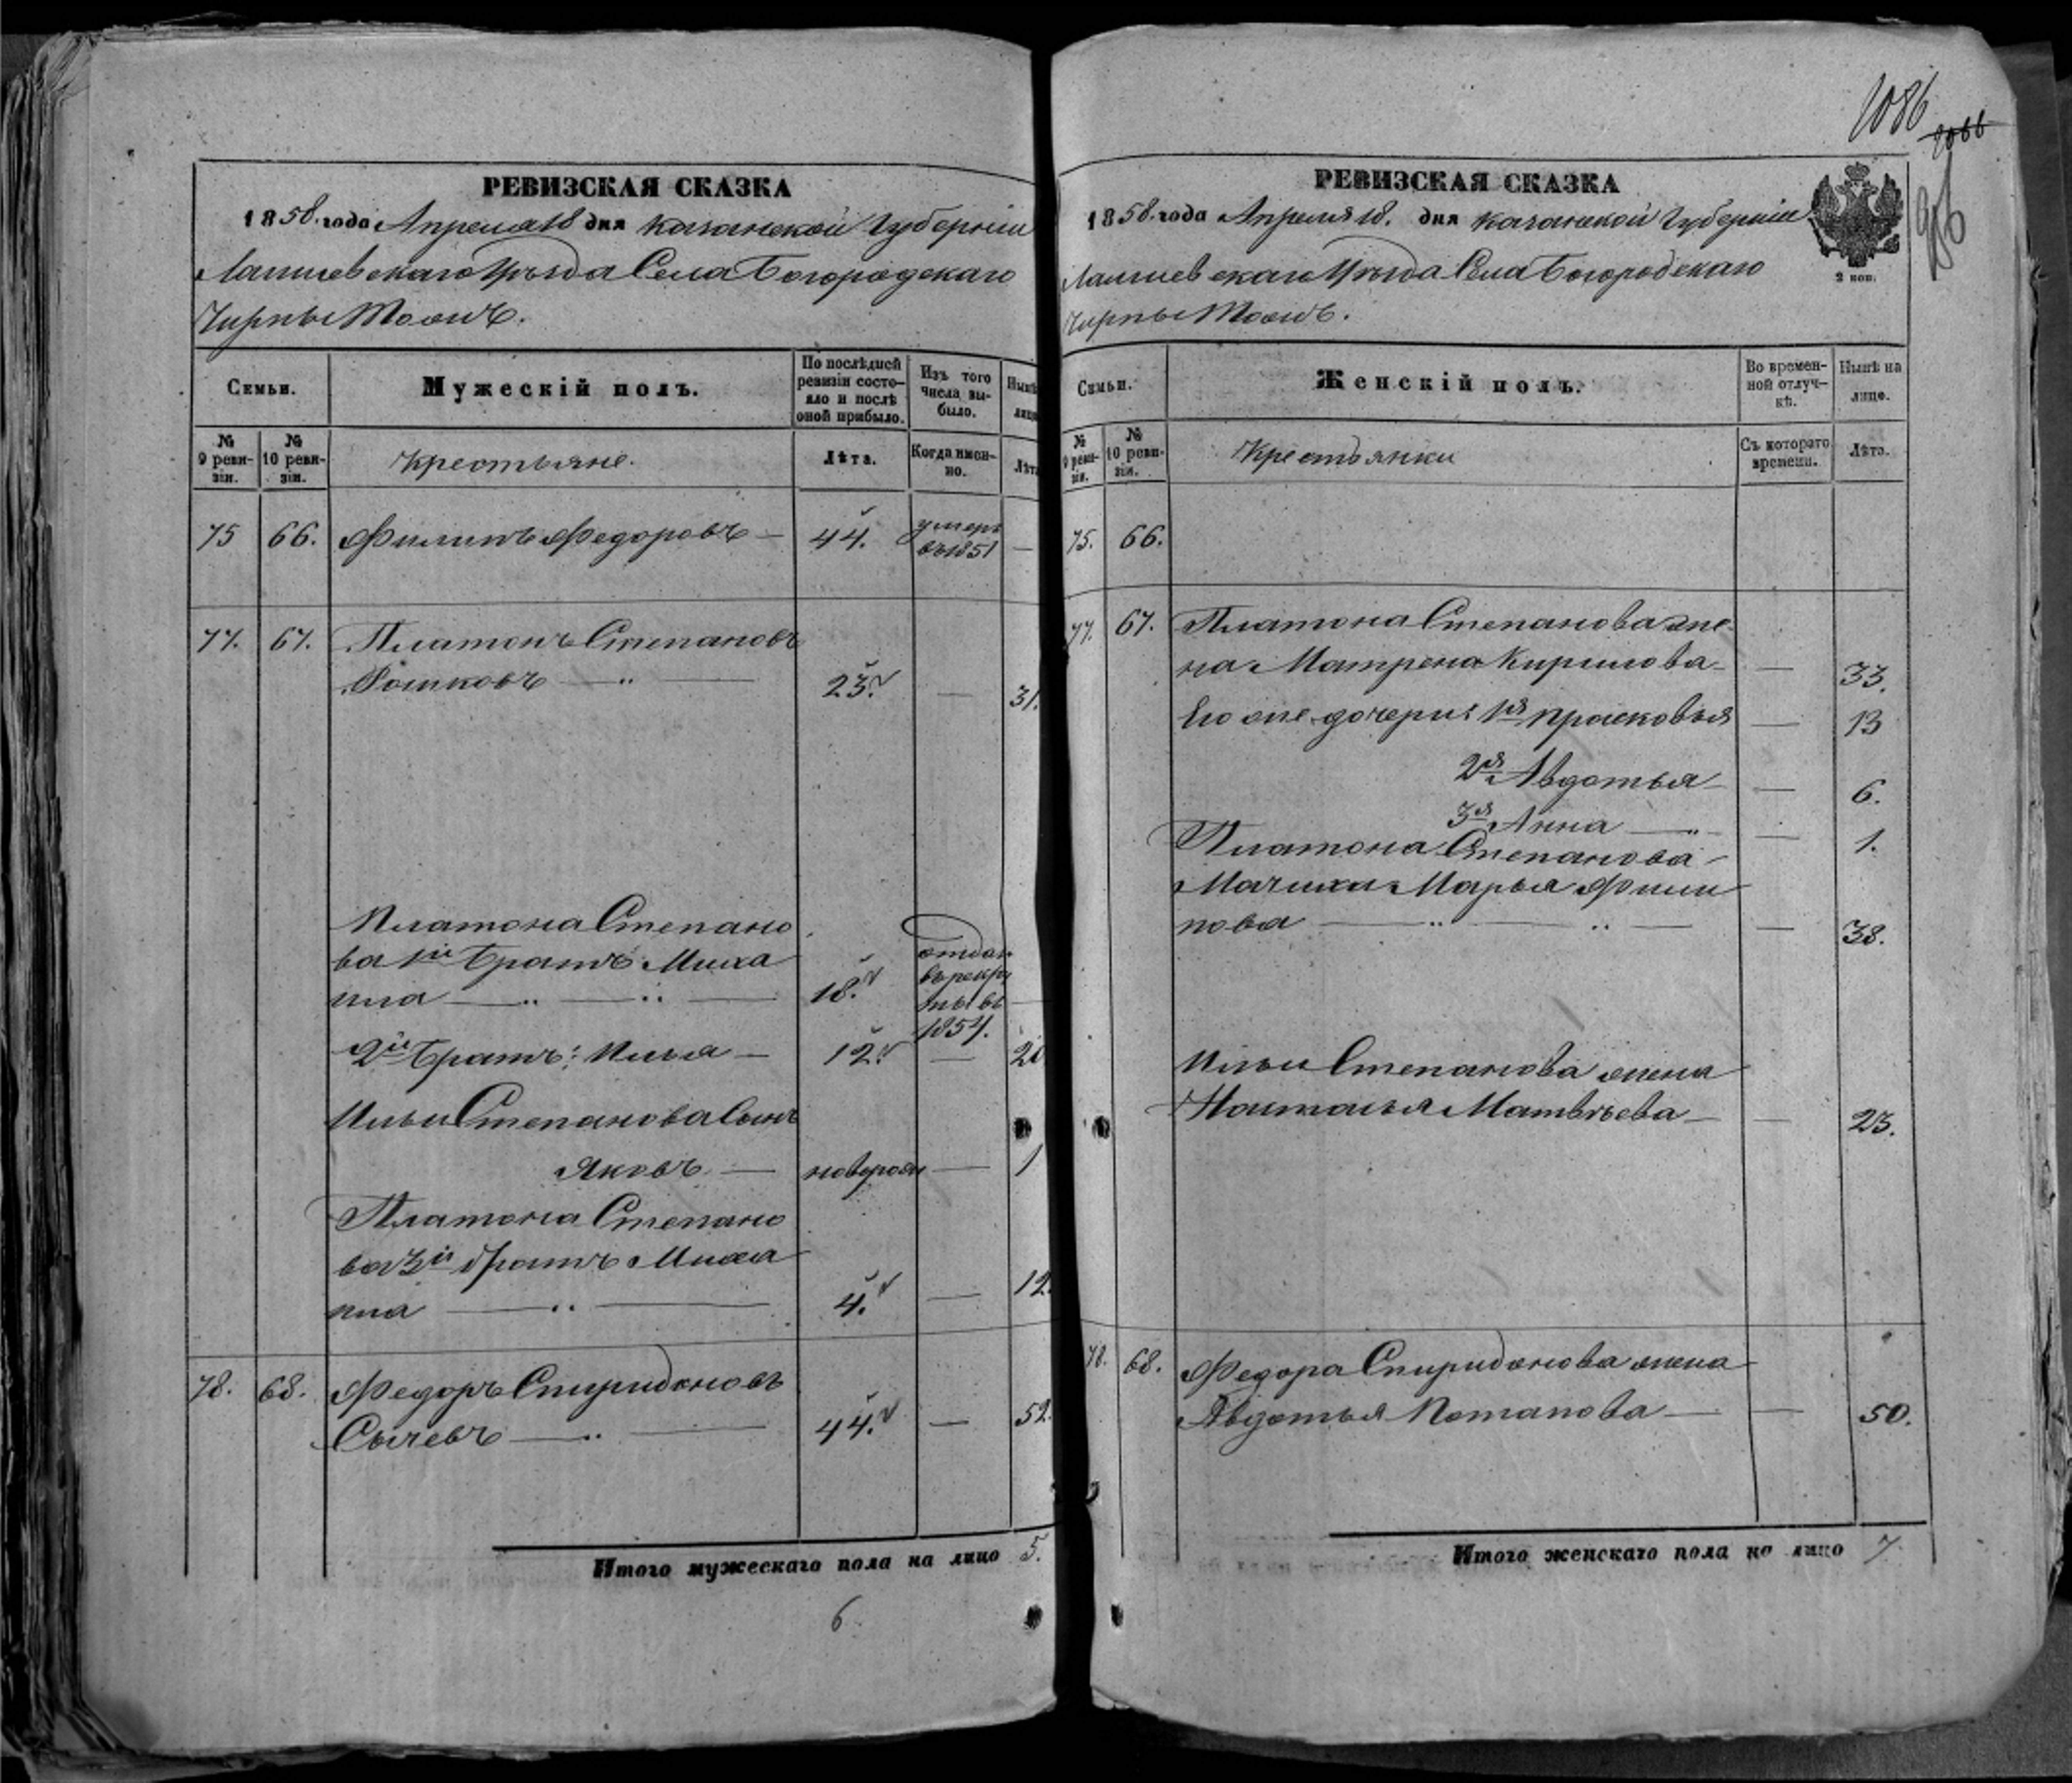 РЕВИЗСКАЯ СКАЗКА
1858. года Апреля 18 дня Казанской Губерніи
Лаишевскаго Уѣзда Села Богородскаго
Чирпы Тожъ.
Семьи.
Мужескій полъ.
По послѣдней ревизіи состояло и послѣ оной прибыло.
Изъ того числа выбыло.
Нынѣ лицо
№ 9 ревизіи.
№ 10 ревизіи.
Крестьяне.
Лѣта.
Когда именно.
Лѣта
75 66. Филипъ Федоровъ — 44. умеръ въ 1851 —
77. 67. Платонъ Степановъ
Рошковъ — „ — 23. — 31.
Платона Степано
ва 1й Братъ Миха
ила — „ — „ — 18. отдан въ рекру ты въ 1854. —
2й Братъ: Илья — 12. —
Ильи Степанова Сынъ
Яковъ — новорож — 1
Платона Степано
ва 3й братъ Миха
ила — „ — 4. — 12.
78. 68. Федоръ Спиридоновъ
Сычевъ — „ — 44. — 52.
Итого мужескаго пола на лицо 5.
6
1086
1066
РЕВИЗСКАЯ СКАЗКА
1858. года Апреля 18. дня Казанской Губерніи
Лаишевскаго Уѣзда Села Богородскаго
Чирпы Тожъ.
2 коп.
Семьи.
Женскій полъ.
Во временной отлучкѣ.
Нынѣ на лицо.
№ 9 ревизіи.
№ 10 ревизіи.
Крестьянки
Съ котораго времени.
Лѣта.
75. 66.
77. 67. Платона Степанова же
на Матрена Кирилова — — 33.
Его же дочери: 1я Прасковья — 13
2я Авдотья — — 6.
3я Анна — „ — — 1.
Платона Степанова
Мачиха Марья Фили
пова — „ — „ — — 38.
Ильи Степанова жена
Наталья Матвѣева — — 23.
78. 68. Федора Спиридонова жена
Авдотья Потапова — — 50.
Итого женскаго пола на лицо 7.